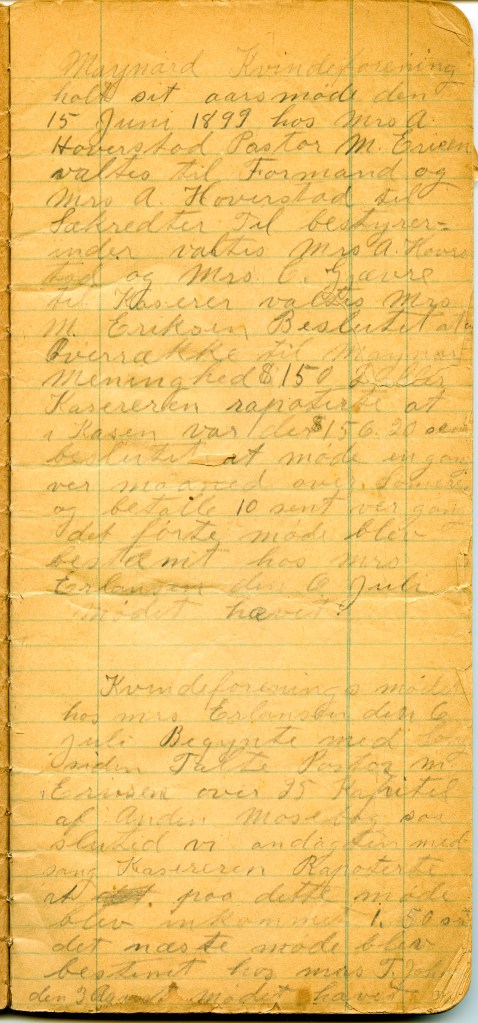 Maynard Kvindeforening
holt sit aarsmøde den
15 Juni 1899 hos Mrs A.
Hoverstad Pastor M. Ericsen
valtes til Formand og
Mrs A. Hoverstad til
Sækredter Til bestyrer=
inder valtes Mrs A. Hovrs
tad og Mrs. C. Gjavre
til Kaserer valtes Mrs.
M. Eriksen Beslutit at
Overrække til Maynar
Meninghed $150 Dollar
Kasereren raporterte at
i Kasen var der $156.20 sent
beslutit at møde in gan
ver maaned over Someren
og betalle 10 sent ver gan
det førte møde blev
bestemt hos mrs
Erlansen den 6 Juli
mødet hævet.
Kvindeforenings mødet
hos mrs Erlansen den 6
Juli Begynte med sang
siden Talte Pastor M
Ericsen over 35 Kapitel
af Anden Mosebog saa
sluted vi andagten med
sang Kasereren Raporterte
at paa dette møde
blev inkommet 1.50 st
det næste møde blev
bestemt hos mrs T. John
den 3 August mødet hævet